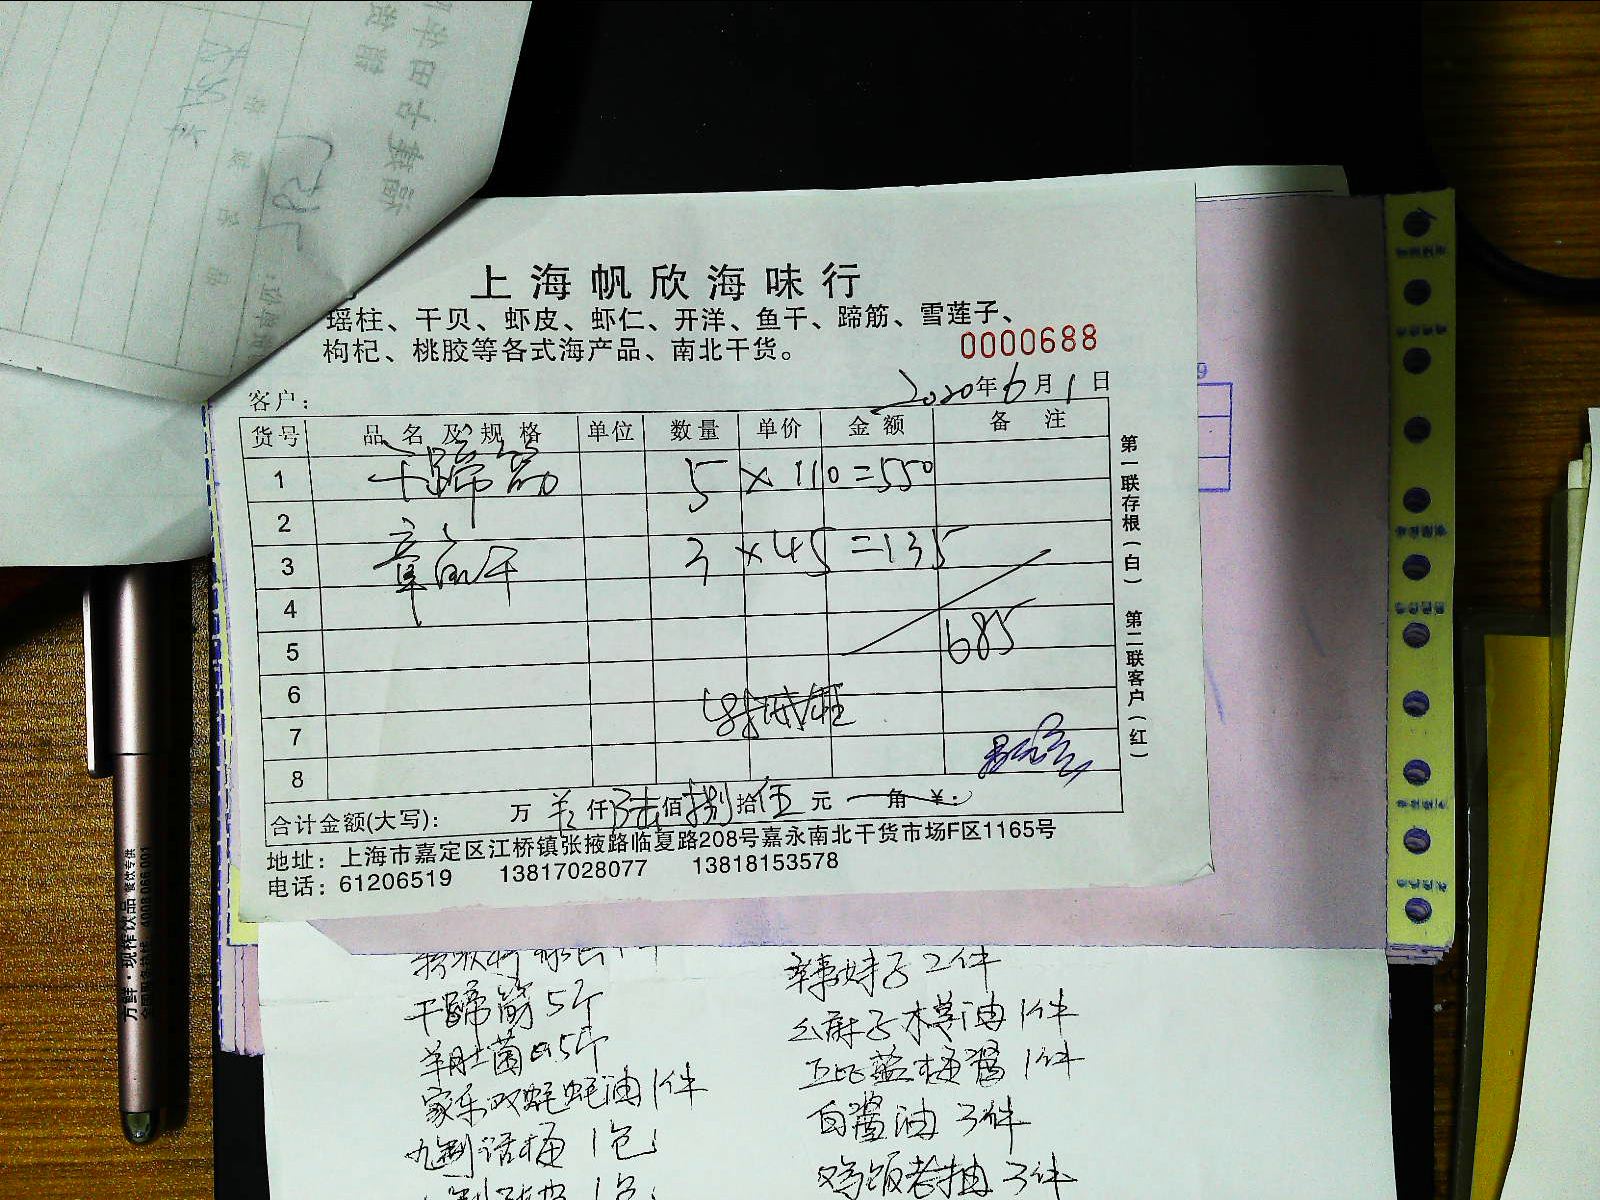 上海帆欣海味行
瑶柱、干贝、虾皮、虾仁、开洋、鱼干、蹄筋、雪莲子、
枸杞、桃胶等各式海产品、南北干货。
0000688
客户：
2020年6月1日
货号 品名及规格 单位 数量 单价 金额 备注
1 干蹄筋 5 × 110 = 550
2
3 章鱼干 3 × 45 = 135
4
5 685
6
7
8
合计金额(大写)： 万 仟陆佰捌拾伍元 角 ¥：
地址：上海市嘉定区江桥镇张掖路临夏路208号嘉永南北干货市场F区1165号
电话：61206519 13817028077 13818153578
第一联存根(白) 第二联客户(红)
干蹄筋 5斤
羊肚菌 0.5斤
家乐双蚝蚝油 1件
九制话梅 1包
辣妹子 2件
幺麻子木姜油 1件
蓝梅酱 1件
白酱油 3件
鸡饭老抽 3件
万鲜·现榨饮品 餐饮专供